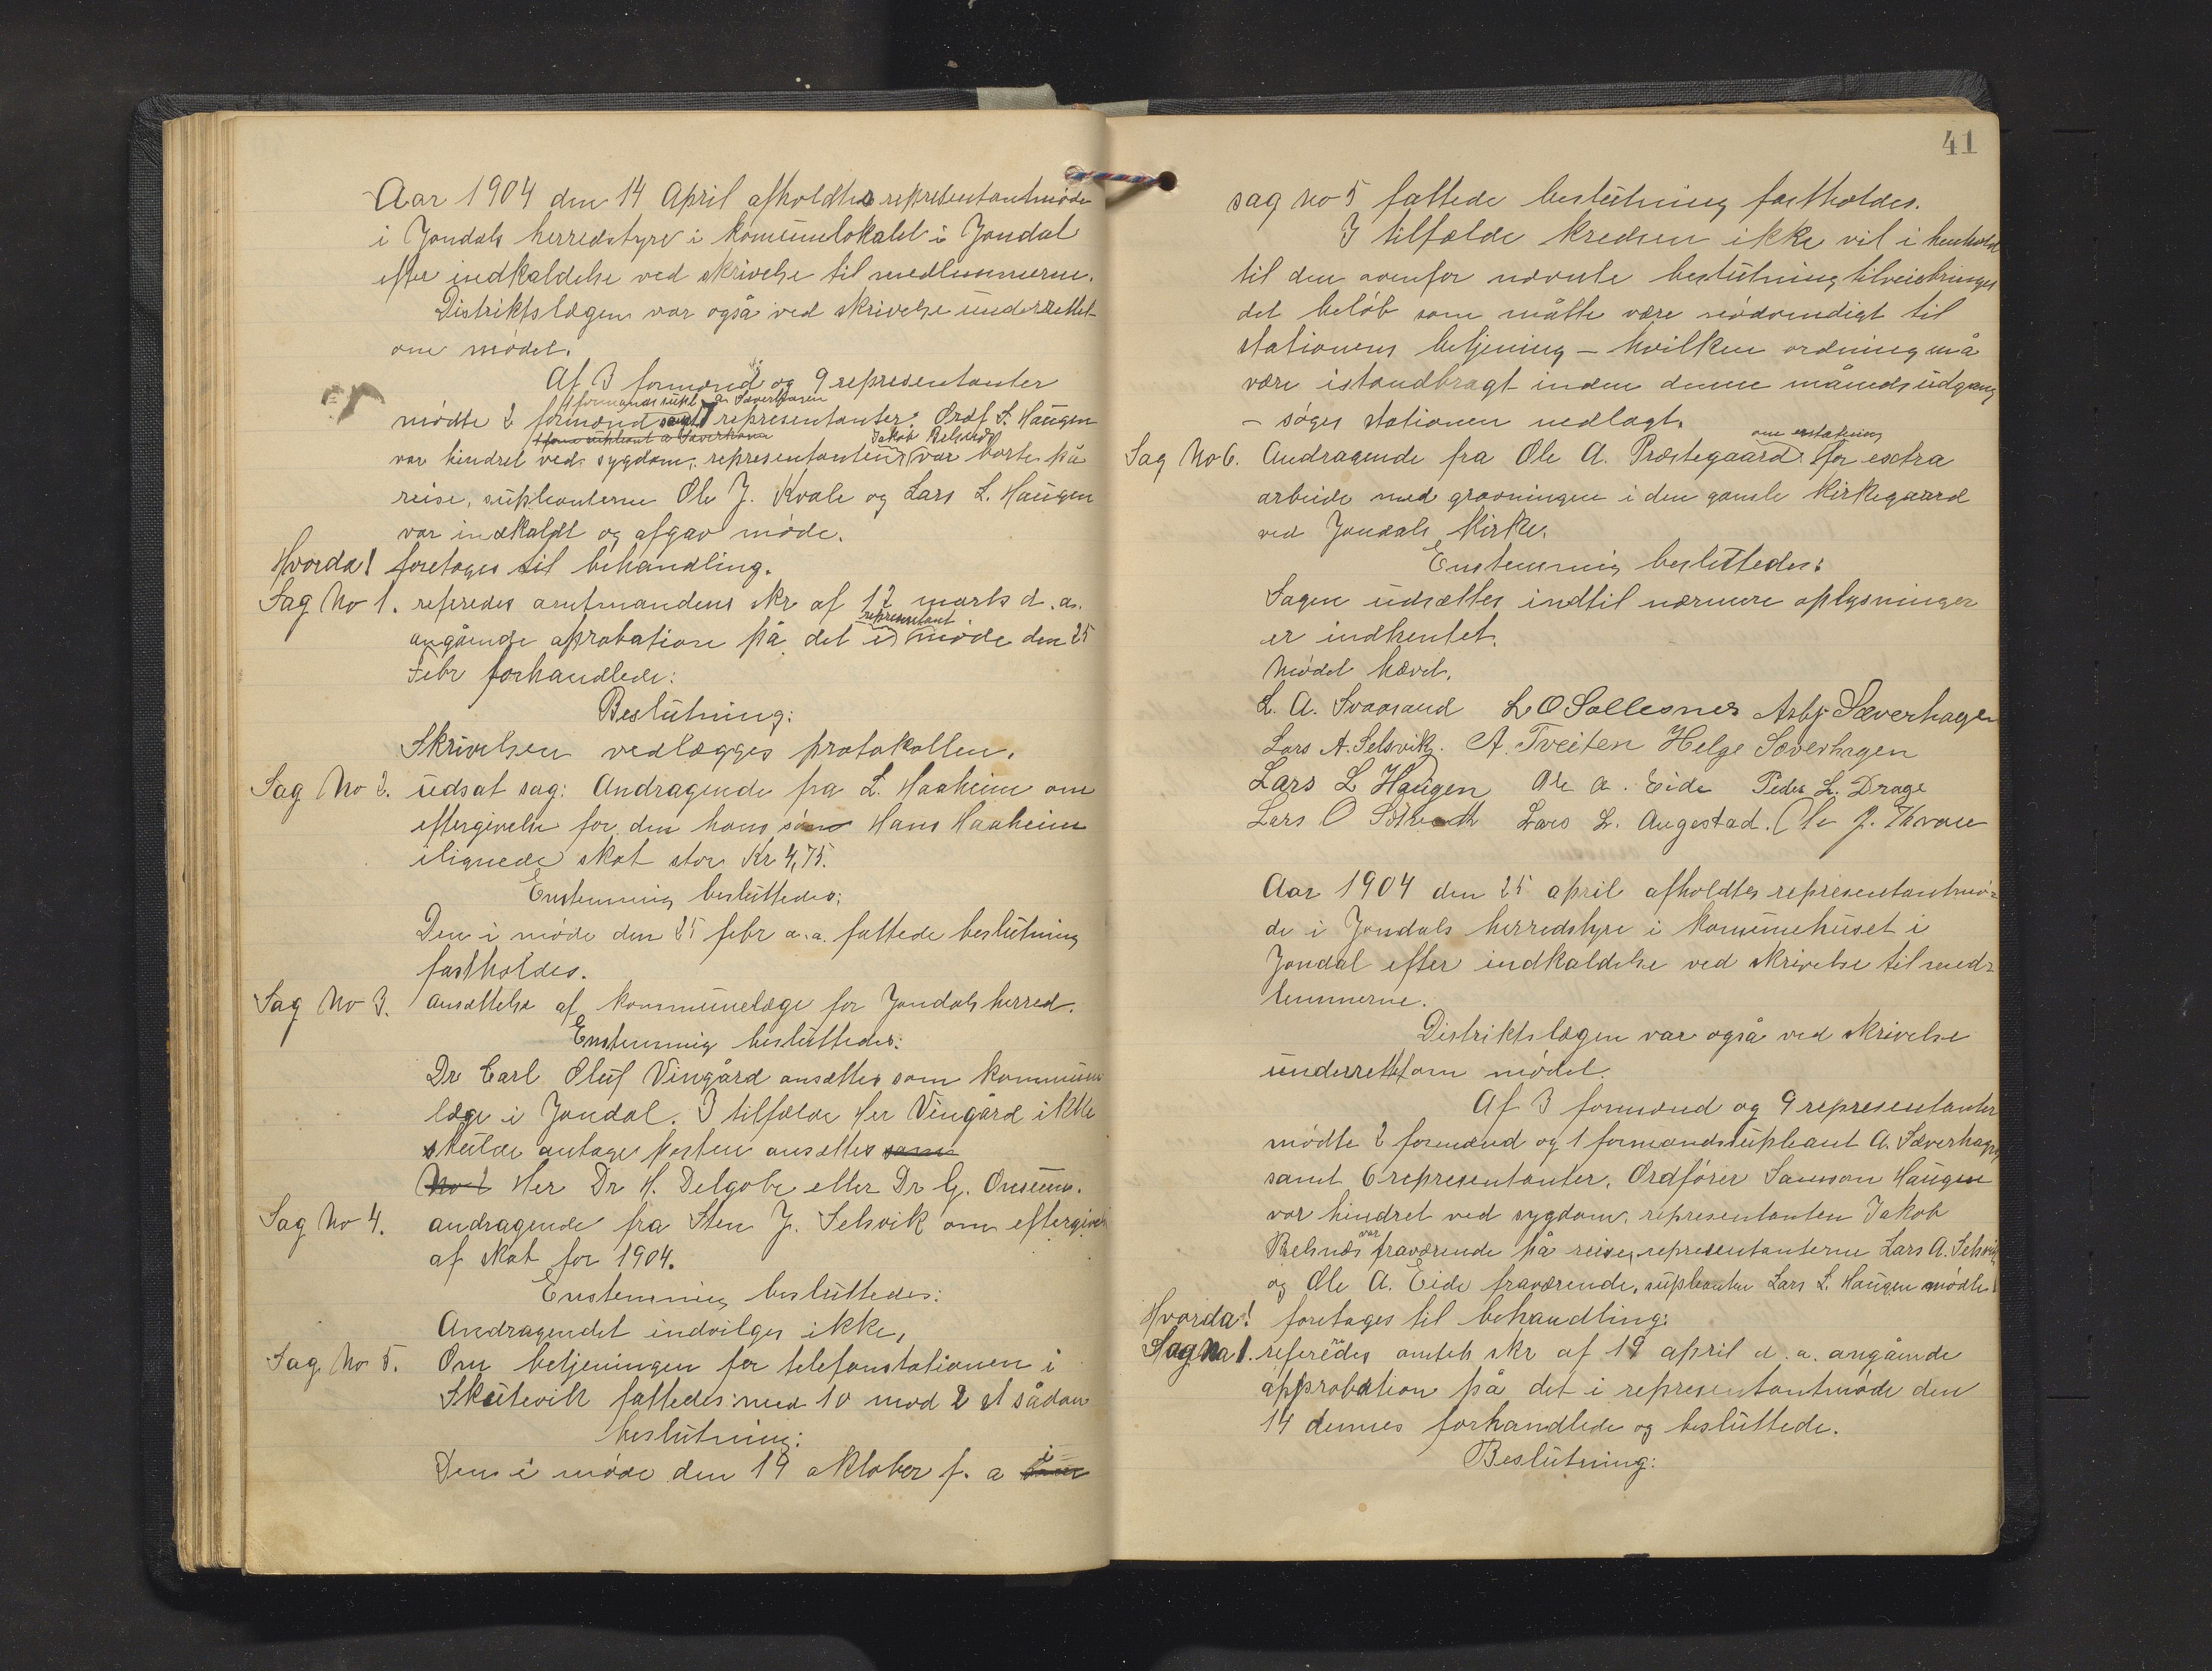 Aar 1904 den 14 April afholdtes representantmøde
i Jondals herredstyre i komunelokalet i Jondal
efter indkaldelse ved skrivelse til medlemmerne.
Distriktslægen var også ved skrivelse underrettet
om mødet.
Af 3 formænd og 9 representanter
1 formandssupl. A. Sæverhagen
mødte 2 formænd samt 7 representanter. Ordf. S. Haugen
Jakob Belsnæs
var hindret ved sygdom, representanten var borte på
reise, supleanterne Ole J. Kvale og Lars L. Haugen
var indkaldt og afgav møde.
Hvorda! foretoges til behandling.
Sag No 1. referedes amtmandens skr af 17 marts d. a.
representant
angående aprobation på det i møde den 25
Febr forhandlede:
Beslutning:
Skrivelsen vedlægges protokollen.
Sag No 2. udsat sag: Andragende fra L. Haaheim om
eftergivelse for den hans søn Hans Haaheim
ilignede skat stor Kr 4,75.
Enstemmig besluttedes:
Den i møde den 25 febr a. a. fattede beslutning
fastholdes.
Sag No 3. ansættelse af kommunelæge for Jondals herred.
Enstemmig besluttedes:
Dr Carl Oluf Vingård ansættes som kommune
læge i Jondal. I tilfælde Her Vingård ikke
skulde antage posten ansættes som
No 2 Her Dr H. Delgobe eller Dr G. Onsum.
Sag No 4. andragende fra Sten J. Selsvik om eftergivelse
af skat for 1904.
Enstemmig besluttedes:
Andragendet indvilges ikke.
Sag No 5. Om betjeningen for telefonstationen i
Skutevik fattedes med 10 mod 2 st sådan
beslutning:
Den i møde den 19 oktober f. a i
41
sag no 5 fattede beslutning fastholdes.
I tilfælde kredsen ikke vil i henhold
til den ovenfor nævnte beslutning tilveiebringe
det beløb som måtte være nødvendigt til
stationens betjening – hvilken ordning må
være istandbragt inden denne måneds udgang
– søges stationen nedlagt.
om erstatning
Sag No 6. Andragende fra Ole A. Præstegaard for extra
arbeide med gravningen i den gamle kirkegaard
ved Jondals kirke.
Enstemmig besluttedes:
Sagen udsættes indtil nærmere oplysninger
er indhentet.
Mødet hævet.
L. A. Svaasand L O Sollesnes Asbj. Sæverhagen
Lars A. Selsvik. A. Tveiten Helge Sæverhagen
Lars L Haugen Ole A. Eide Peder L. Drage
Lars O Lars L. Augestad. Ole J. Kvale
Aar 1904 den 25 april afholdtes representantmø-
de i Jondals herredstyre i komunehuset i
Jondal efter indkaldelse ved skrivelse til med-
lemmerne.
Distriktslægen var også ved skrivelse
underrettet om mødet.
Af 3 formænd og 9 representanter
mødte 2 formænd og 1 formandssupleant A. Sæverhagen
samt 6 representanter. Ordfører Samson Haugen
var hindret ved sygdom, representanten Jakob
var
Belsnæs fraværende på reise, representanterne Lars A. Selsvik
og Ole A. Eide fraværende, supleanten Lars L. Haugen mødte.
Hvorda! foretoges til behandling:
Sag No 1. refereredes amtets skr af 19 april d. a. angående
approbation på det i representantmøde den
14 dennes forhandlede og besluttede.
Beslutning: